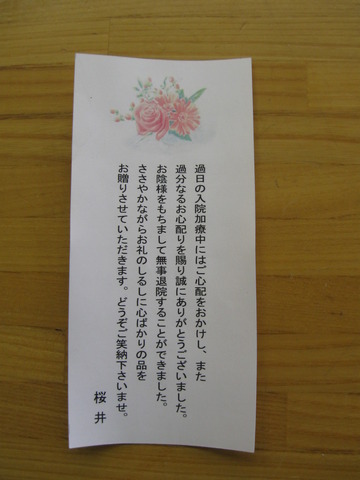 過日の入院加療中にはご心配をおかけし、また
過分なるお心配りを賜り誠にありがとうございました。
お陰様をもちまして無事退院することができました。
ささやかながらお礼のしるしに心ばかりの品を
お贈りさせていただきます。どうぞご笑納下さいませ。
桜井